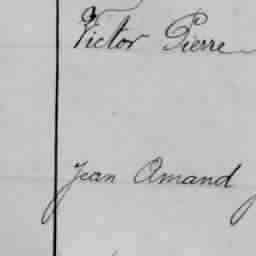 Victor Pierre
Jean Amand